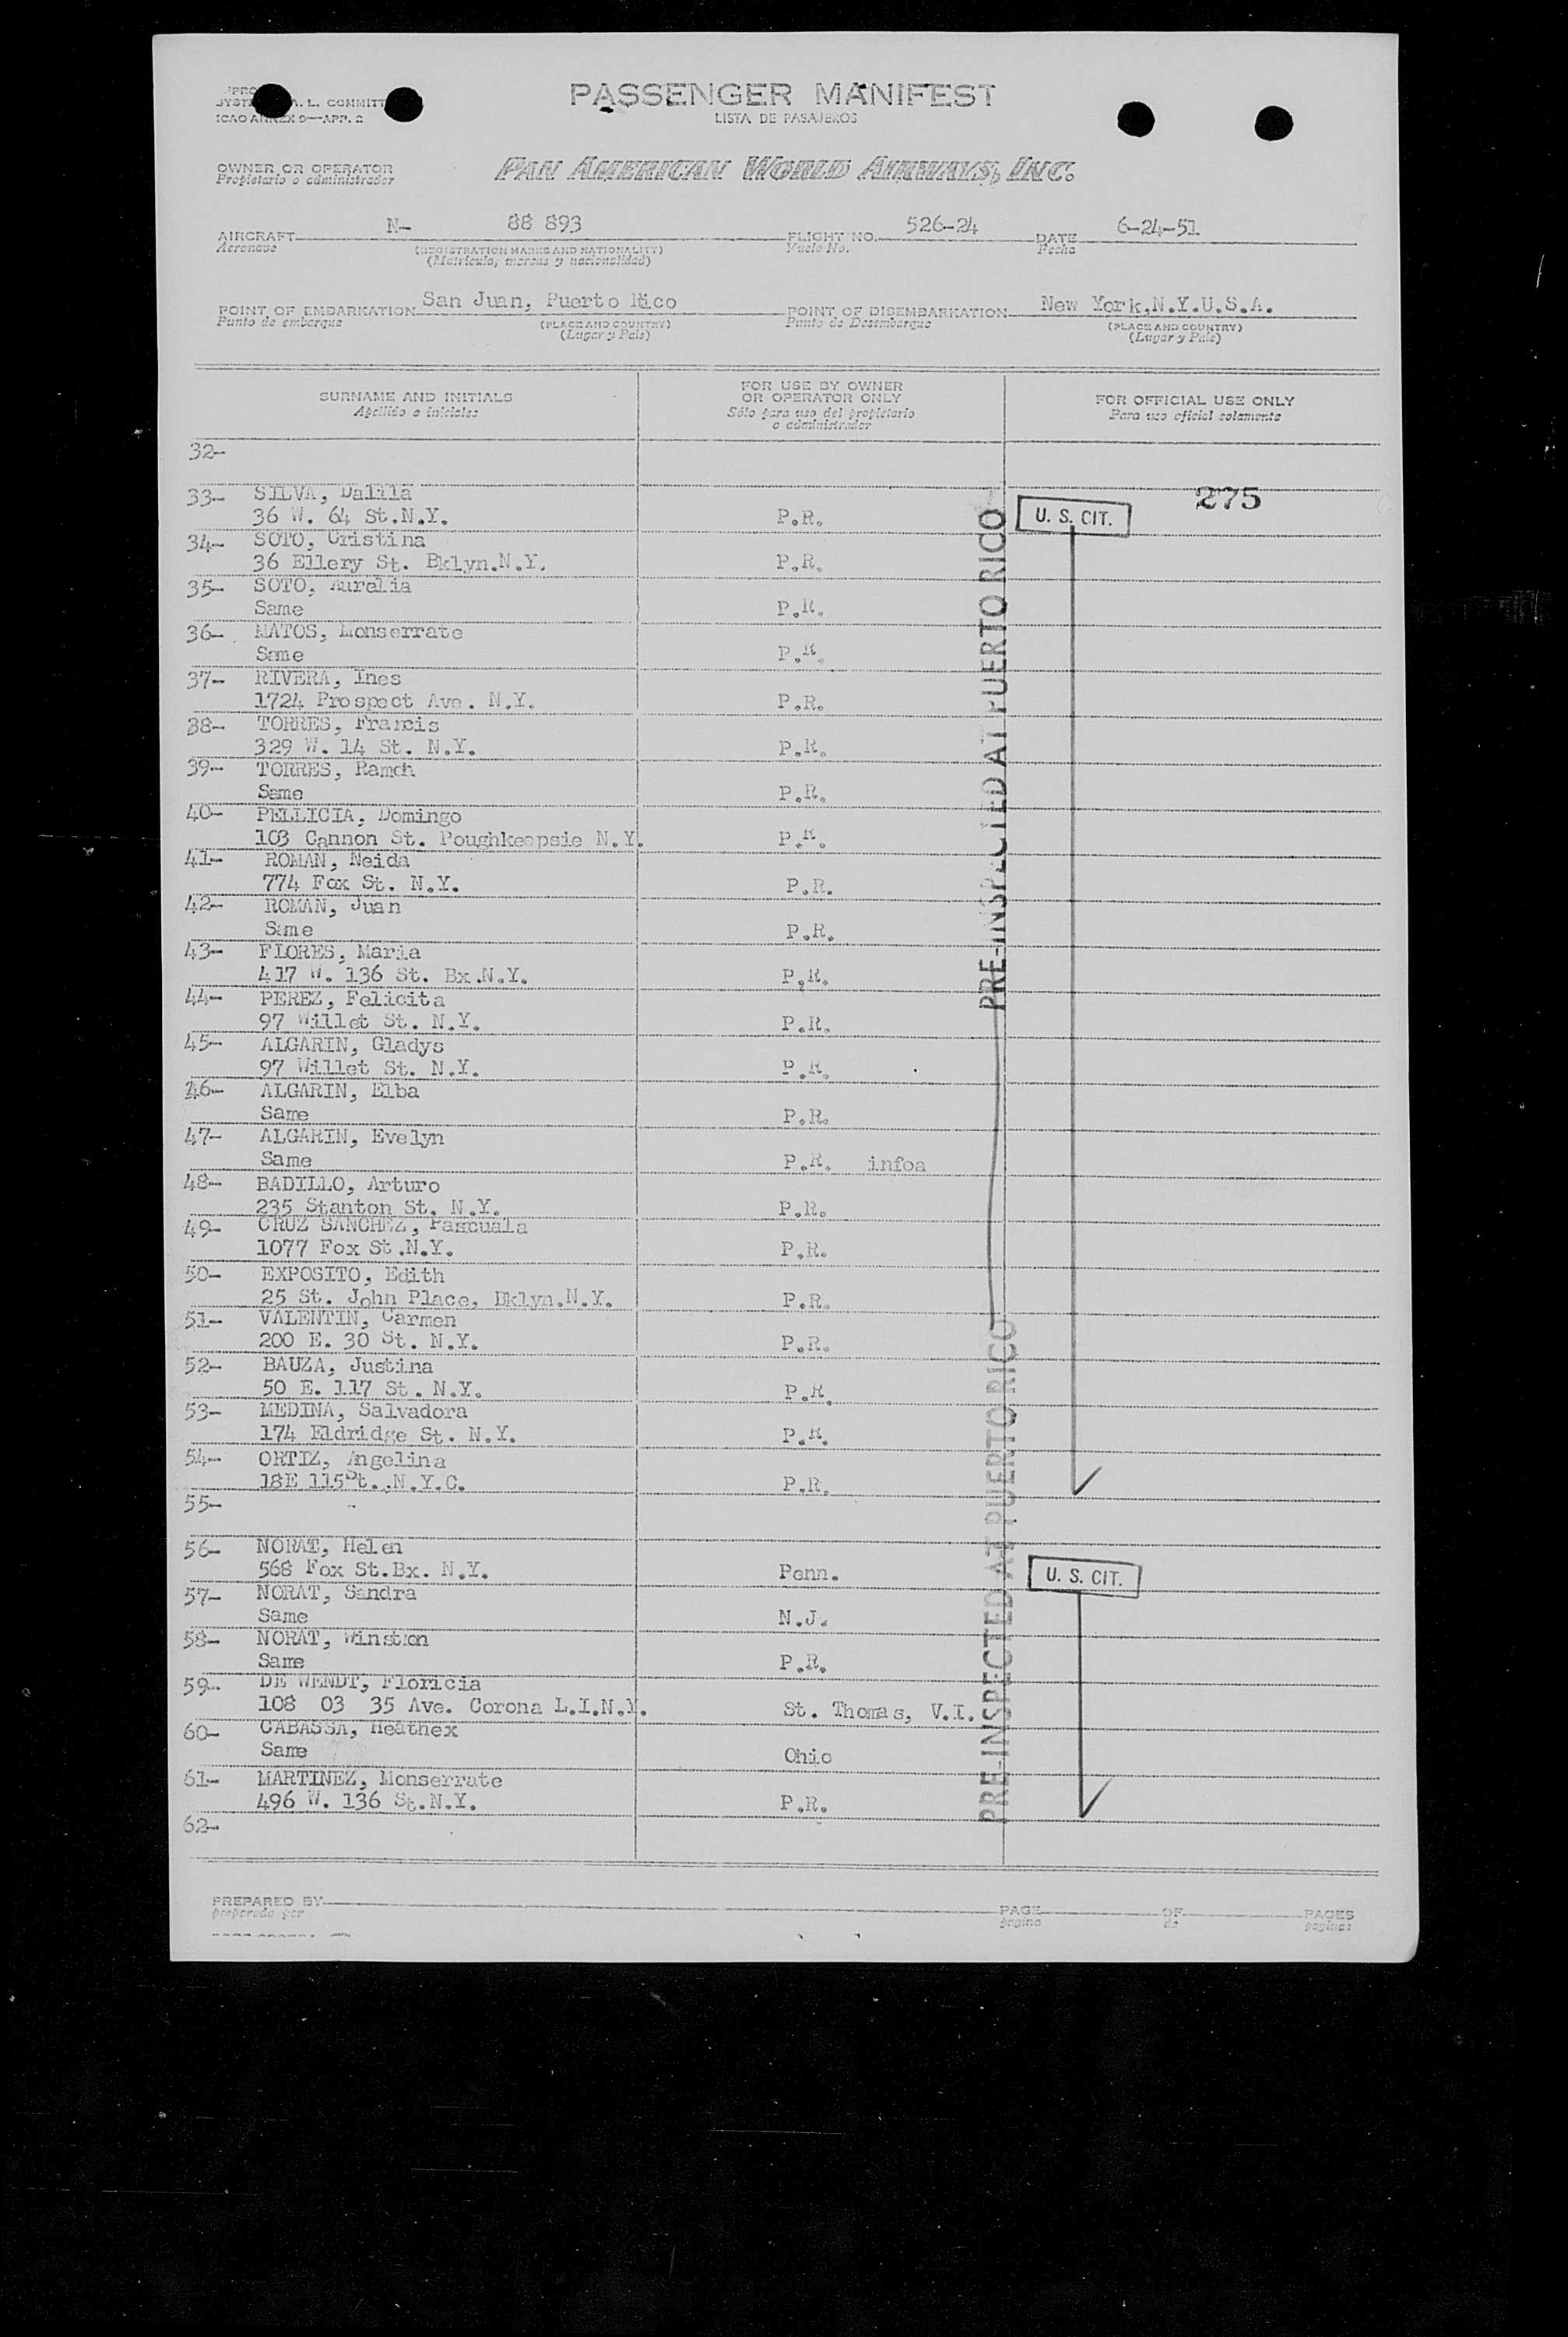 PASSENGER MANIFEST
LISTA DE PASAJEROS
A. L. COMMITT
ICAO ANNEX 9—APP. 2
OWNER OR OPERATOR
Propietario o administrador
PAN AMERICAN WORLD AIRWAYS, INC.
AIRCRAFT N- 88 893 FLIGHT NO. 526-24 DATE 6-24-51
Aeronave (REGISTRATION MARKS AND NATIONALITY) Vuelo No. Fecha
(Matrícula, marcas y nacionalidad)
POINT OF EMBARKATION San Juan, Puerto Rico POINT OF DISEMBARKATION New York,N.Y.U.S.A.
Punto de embarque (PLACE AND COUNTRY) Punto de Desembarque (PLACE AND COUNTRY)
(Lugar y País) (Lugar y País)
SURNAME AND INITIALS
Apellido e iniciales
FOR USE BY OWNER
OR OPERATOR ONLY
Sólo para uso del propietario
o administrador
FOR OFFICIAL USE ONLY
Para uso oficial solamente
32-
33- SILVA, Dalila 275
36 W. 64 St.N.Y. P.R. U. S. CIT.
34- SOTO, Cristina
36 Ellery St. Bklyn.N.Y. P.R.
35- SOTO, Aurelia
Same P.R.
36- MATOS, Monserrate
Same P.R.
37- RIVERA, Ines
1724 Prospect Ave. N.Y. P.R.
38- TORRES, Francis
329 W. 14 St. N.Y. P.R.
39- TORRES, Ramon
Same P.R.
40- PELLICIA, Domingo
103 Cannon St. Poughkeepsie N.Y. P.R.
41- ROMAN, Neida
774 Fox St. N.Y. P.R.
42- ROMAN, Juan
Same P.R.
43- FLORES, Maria
417 W. 136 St. Bx.N.Y. P.R.
44- PEREZ, Felicita
97 Willet St. N.Y. P.R.
45- ALGARIN, Gladys
97 Willet St. N.Y. P.R.
46- ALGARIN, Elba
Same P.R.
47- ALGARIN, Evelyn
Same P.R. infoa
48- BADILLO, Arturo
235 Stanton St. N.Y. P.R.
49- CRUZ SANCHEZ, Pascuala
1077 Fox St.N.Y. P.R.
50- EXPOSITO, Edith
25 St. John Place, Bklyn.N.Y. P.R.
51- VALENTIN, Carmen
200 E. 30 St. N.Y. P.R.
52- BAUZA, Justina
50 E. 117 St. N.Y. P.R.
53- MEDINA, Salvadora
174 Eldridge St. N.Y. P.R.
54- ORTIZ, Angelina
18E 115St. N.Y.C. P.R.
55-
56- NORAT, Helen
568 Fox St.Bx. N.Y. Penn. U. S. CIT.
57- NORAT, Sandra
Same N.J.
58- NORAT, Winston
Same P.R.
59- DE WENDT, Floricia
108 03 35 Ave. Corona L.I.N.Y. St. Thomas, V.I.
60- CABASSA, Heathex
Same Ohio
61- MARTINEZ, Monserrate
496 W. 136 St.N.Y. P.R.
62-
PRE-INSPECTED AT PUERTO RICO
PRE-INSPECTED AT PUERTO RICO
PREPARED BY PAGE OF PAGES
preparado por página de páginas